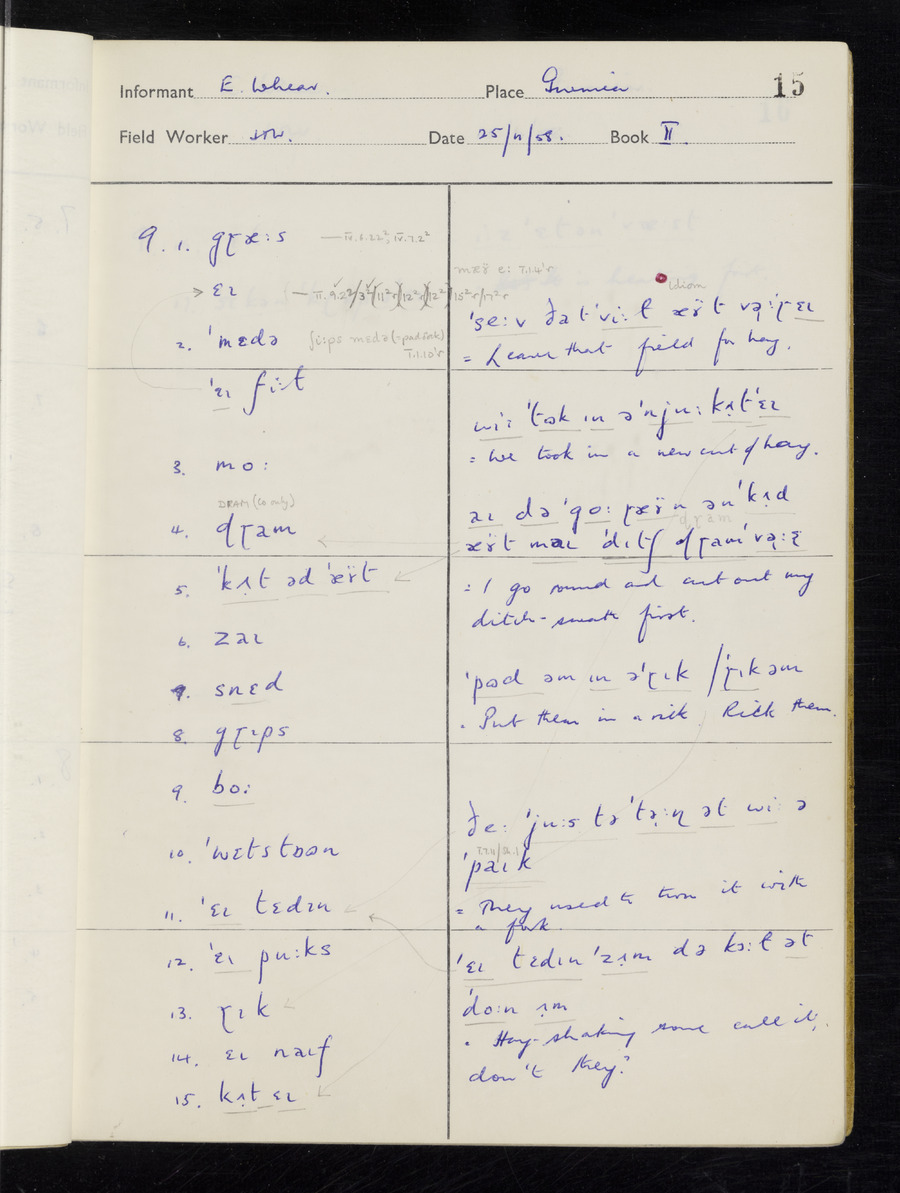 Informant E. Whear. Place 15
Field Worker Date 25/11/58. Book II
9. 1. gɽæ:s — IV.6.22², IV.7.2²
→ ɛɪ
2. 'mɛdə
'ɛɪ fi:ɫ
3. mo:
DRAM (Co only)
4. dɽam
5. 'kʌt əd 'æʏt
6. zaɪ
7. snɛd
8. gɽɪps
9. bo:
10. 'wɛtstoən
11. 'ɛɪ tɛdɪn
12. 'ɛɪ pu:ks
13. ɽɪk
14. ɛɪ naɪf
15. kʌt ɛɪ
Idiom
'se:v ðat 'vi:ɫ æʏt və:ɽ ɛɪ
= Leave that field for hay.
wi: 'tək ɪn ə 'nju: kʌt 'ɛɪ
= We took in a new cut of hay.
aɪ də 'go: ɽæʏn ən 'kʌd
æʏt maɪ 'dɪtʃ dɽam 'və:s
= I go round and cut out my
ditch-swath first.
'pəd əm ɪn ə 'ɽɪk / 'ɽɪk əm
= Put them in a rick. Rick them.
ðe: 'ju:s tə 'tə:n ət wi: ə
'paɪk
= They used to turn it with
a fork.
'ɛɪ tɛdɪn 'zʌm də kɔ:ɫ ət
'do:n əm
= Hay-shaking some call it,
don't they?